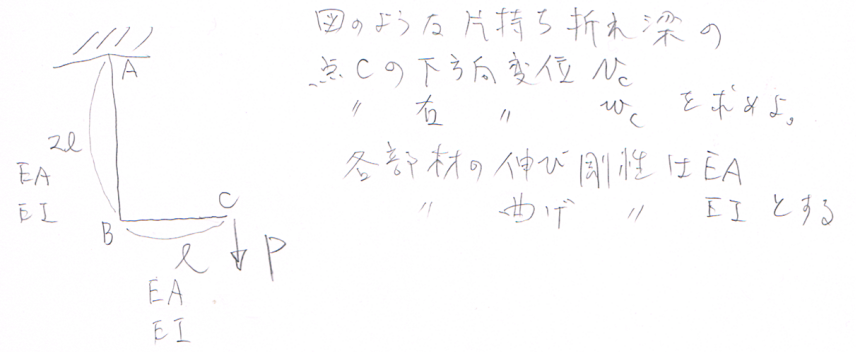 図のような片持ち折れ梁の
点Cの下方向変位 vc
〃 右 〃 wc を求めよ。
各部材の伸び剛性はEA
〃 曲げ 〃 EIとする
A
2l
EA
EI
B
C
l
P
EA
EI